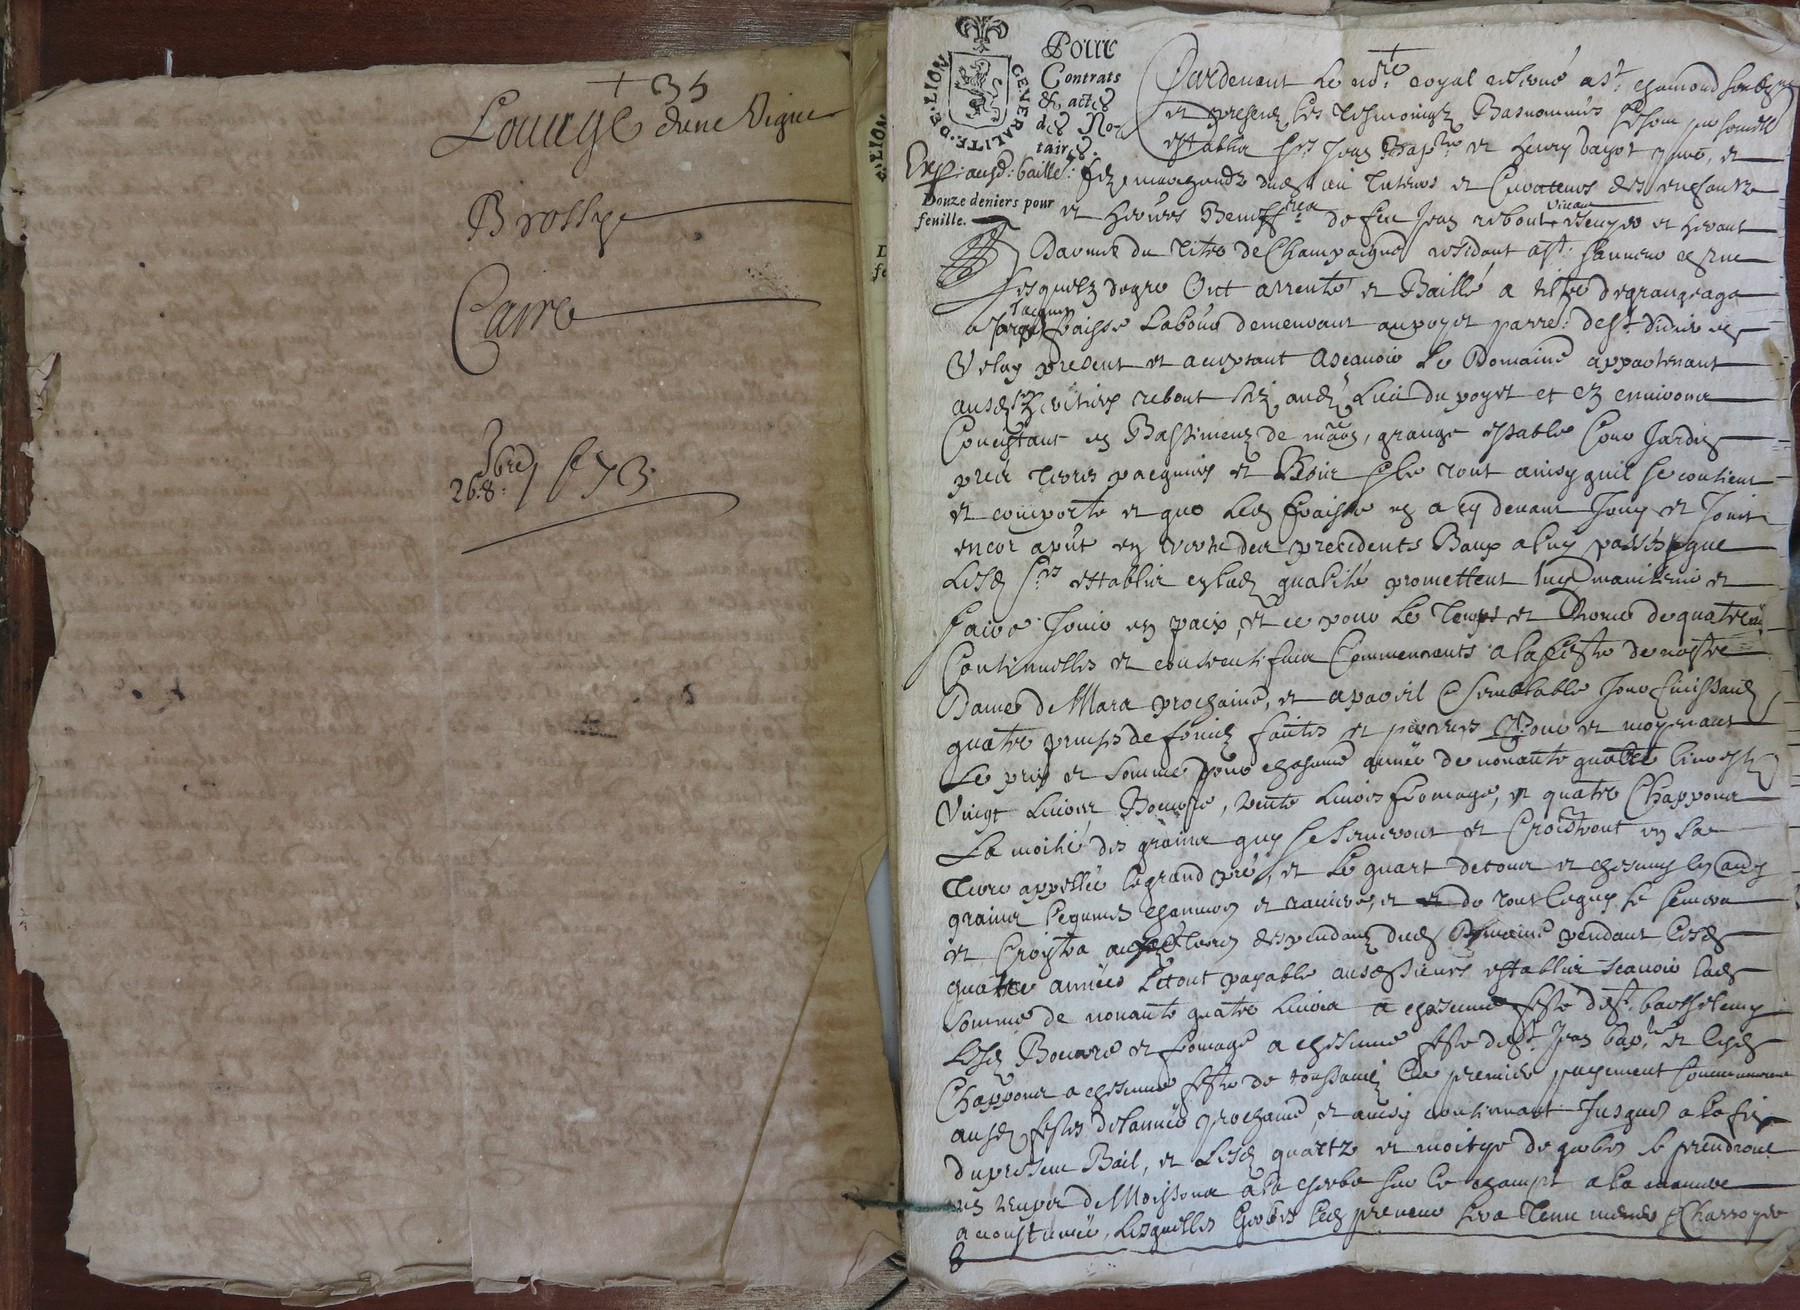 + 35
Louage d'une Vigne
Brossy
Carre
26: 8bre / 1673.
GENERALITE DE LION
Pour
Contrats
& actes
des No-
taires.
Douze deniers pour
feuille.
Exp. ausd: baille:
Pardevant Le no.re royal reservé a St. chamond soubz.
et presentz Les tesmoingz Basnommés se sont
establis Srs Jean Bap.te et Henry bayot et
filz marchandz dud lieu Tuteurs et Curateurs des enfantz
et Heritiers de feu Jean rebout vivant et
du Tître de Champaigne residant a St.
Lesquelz de gré Ont arrenté et Baillé a tiltre de grangeage
a Jacques Faisse Labour demeurant au poyet parre: de St. didier en
Velay present et acceptant Ascavoir Le Domaine appartenant
ausd. heritiers rebout scis aud. Lieu du poyet et ez environs
Concistant en Bastimentz de mãon, grange estable Cour Jardin
prez terres pacquiers et Bois Le tout ainsy quil se contient
et comporte et que Led. faisse en a cy devant Jouy et Jouit
encor a pñt en vertu des precedents Baux a luy passés, que
Lesd. Srs establis en lad. qualité promettent luy maintenir et
faire Jouir en paix, et ce pour Le temps et Therme de quatre
Continuelles et consecutifves Commencants a la feste de nostre
Dame de Mars prochaine, et a pareil et semblable Jour finissant
quatre prinses de foinz faites et perceues Pour et moyenant
Le prix et somme pour chascune année de nonante quatre livres
Vingt Livres Beurre, trente Livres fromage, et quatre Chappons
La moitié des grains quy se semeront et Croistront en La
Terre appellée le grand pré, et Le quart de tous et chascungs les aud.
grains legumes chanvres et raviere, et de tout ce quy se semera
et Croistra aux Terres despendantz dud. Domaine pendant lesd.
quatre années Le tout payable ausd. Sieurs establis scavoir lad.
somme de nonante quatre Livres a chascune feste de St. barthelemy
Lesd. Beurre et fromage a chascune feste de St. Jean bap.te et lesd.
Chappons a chascune feste de toussaintz Le premier payement Commencera
ausd. festes de l'année prochaine, et ainsy continuant Jusques a la fin
du present Bail, et Lesd. quartz et moitye de gerbes se prendront
en temps de Moissons a la Gerbe sur le champt a la maniere
accoustumée, Lesquelles Gerbes Led. preneur sera Tenu mener et Charroyer